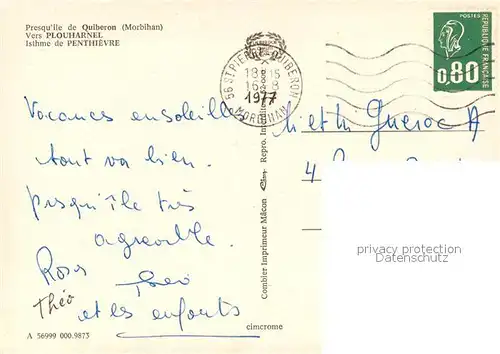 Presqu'île de Quiberon (Morbihan)
Vers PLOUHARNEL
Isthme de PENTHIÈVRE
POSTES
REPUBLIQUE FRANÇAISE
0,80
56 ST PIERRE-QUIBERON
18 H 15
16 - 8
1977
MORBIHAN
Vacances ensoleillées
tout va bien.
presqu'île très
agréable.
Rosy
Théo
Théo
et les enfants
M et M Gueroc A
4
Combier Imprimeur Mâcon
Cim
Repro.
privacy protection
Datenschutz
cimcrome
A 56999 000.9873